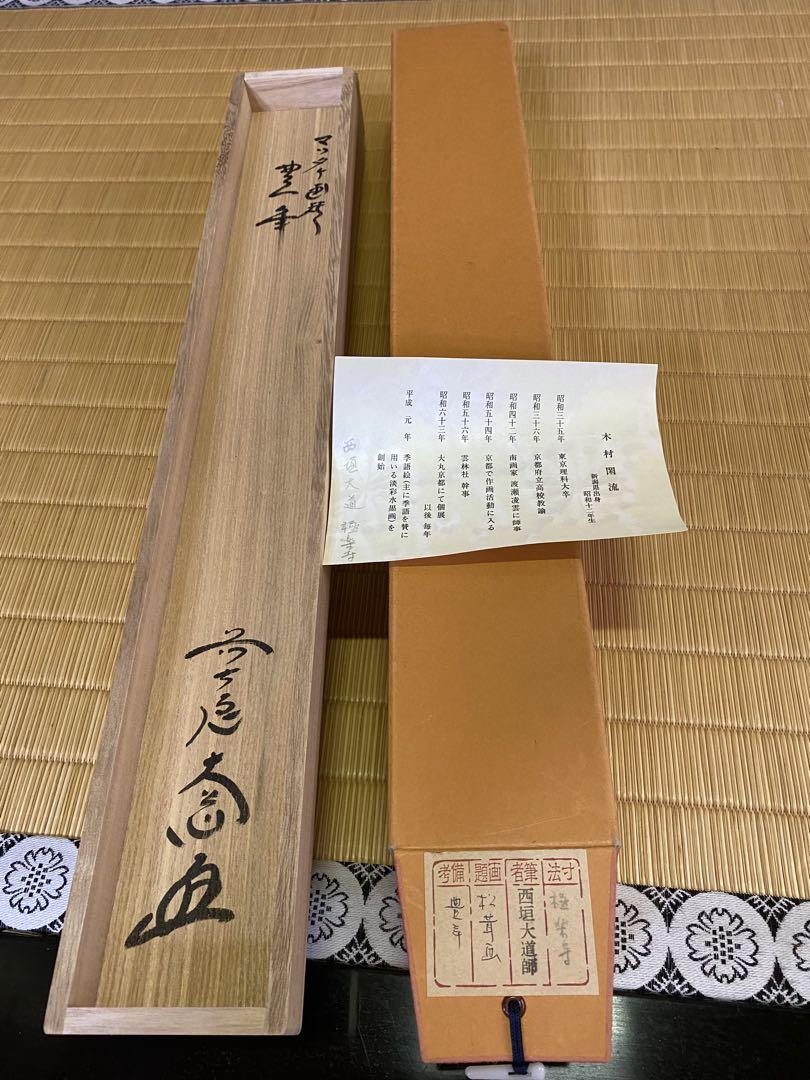 マツタケ画賛
豊年
木村閑流
新潟県出身
昭和十二年生
昭和三十五年 東京理科大卒
昭和三十六年 京都府立高校教諭
昭和四十二年 南画家 渡瀬凌雲に師事
昭和五十四年 京都で作画活動に入る
昭和五十六年 雲林社 幹事
昭和六十三年 大丸京都にて個展
以後 毎年
平成 元 年 季語絵(主に季語を賛に
用いる淡彩水墨画)を
創始
西垣大道 極楽寺
寸法 極楽寺
筆者 西垣大道師
画題 松茸画
備考 豊年